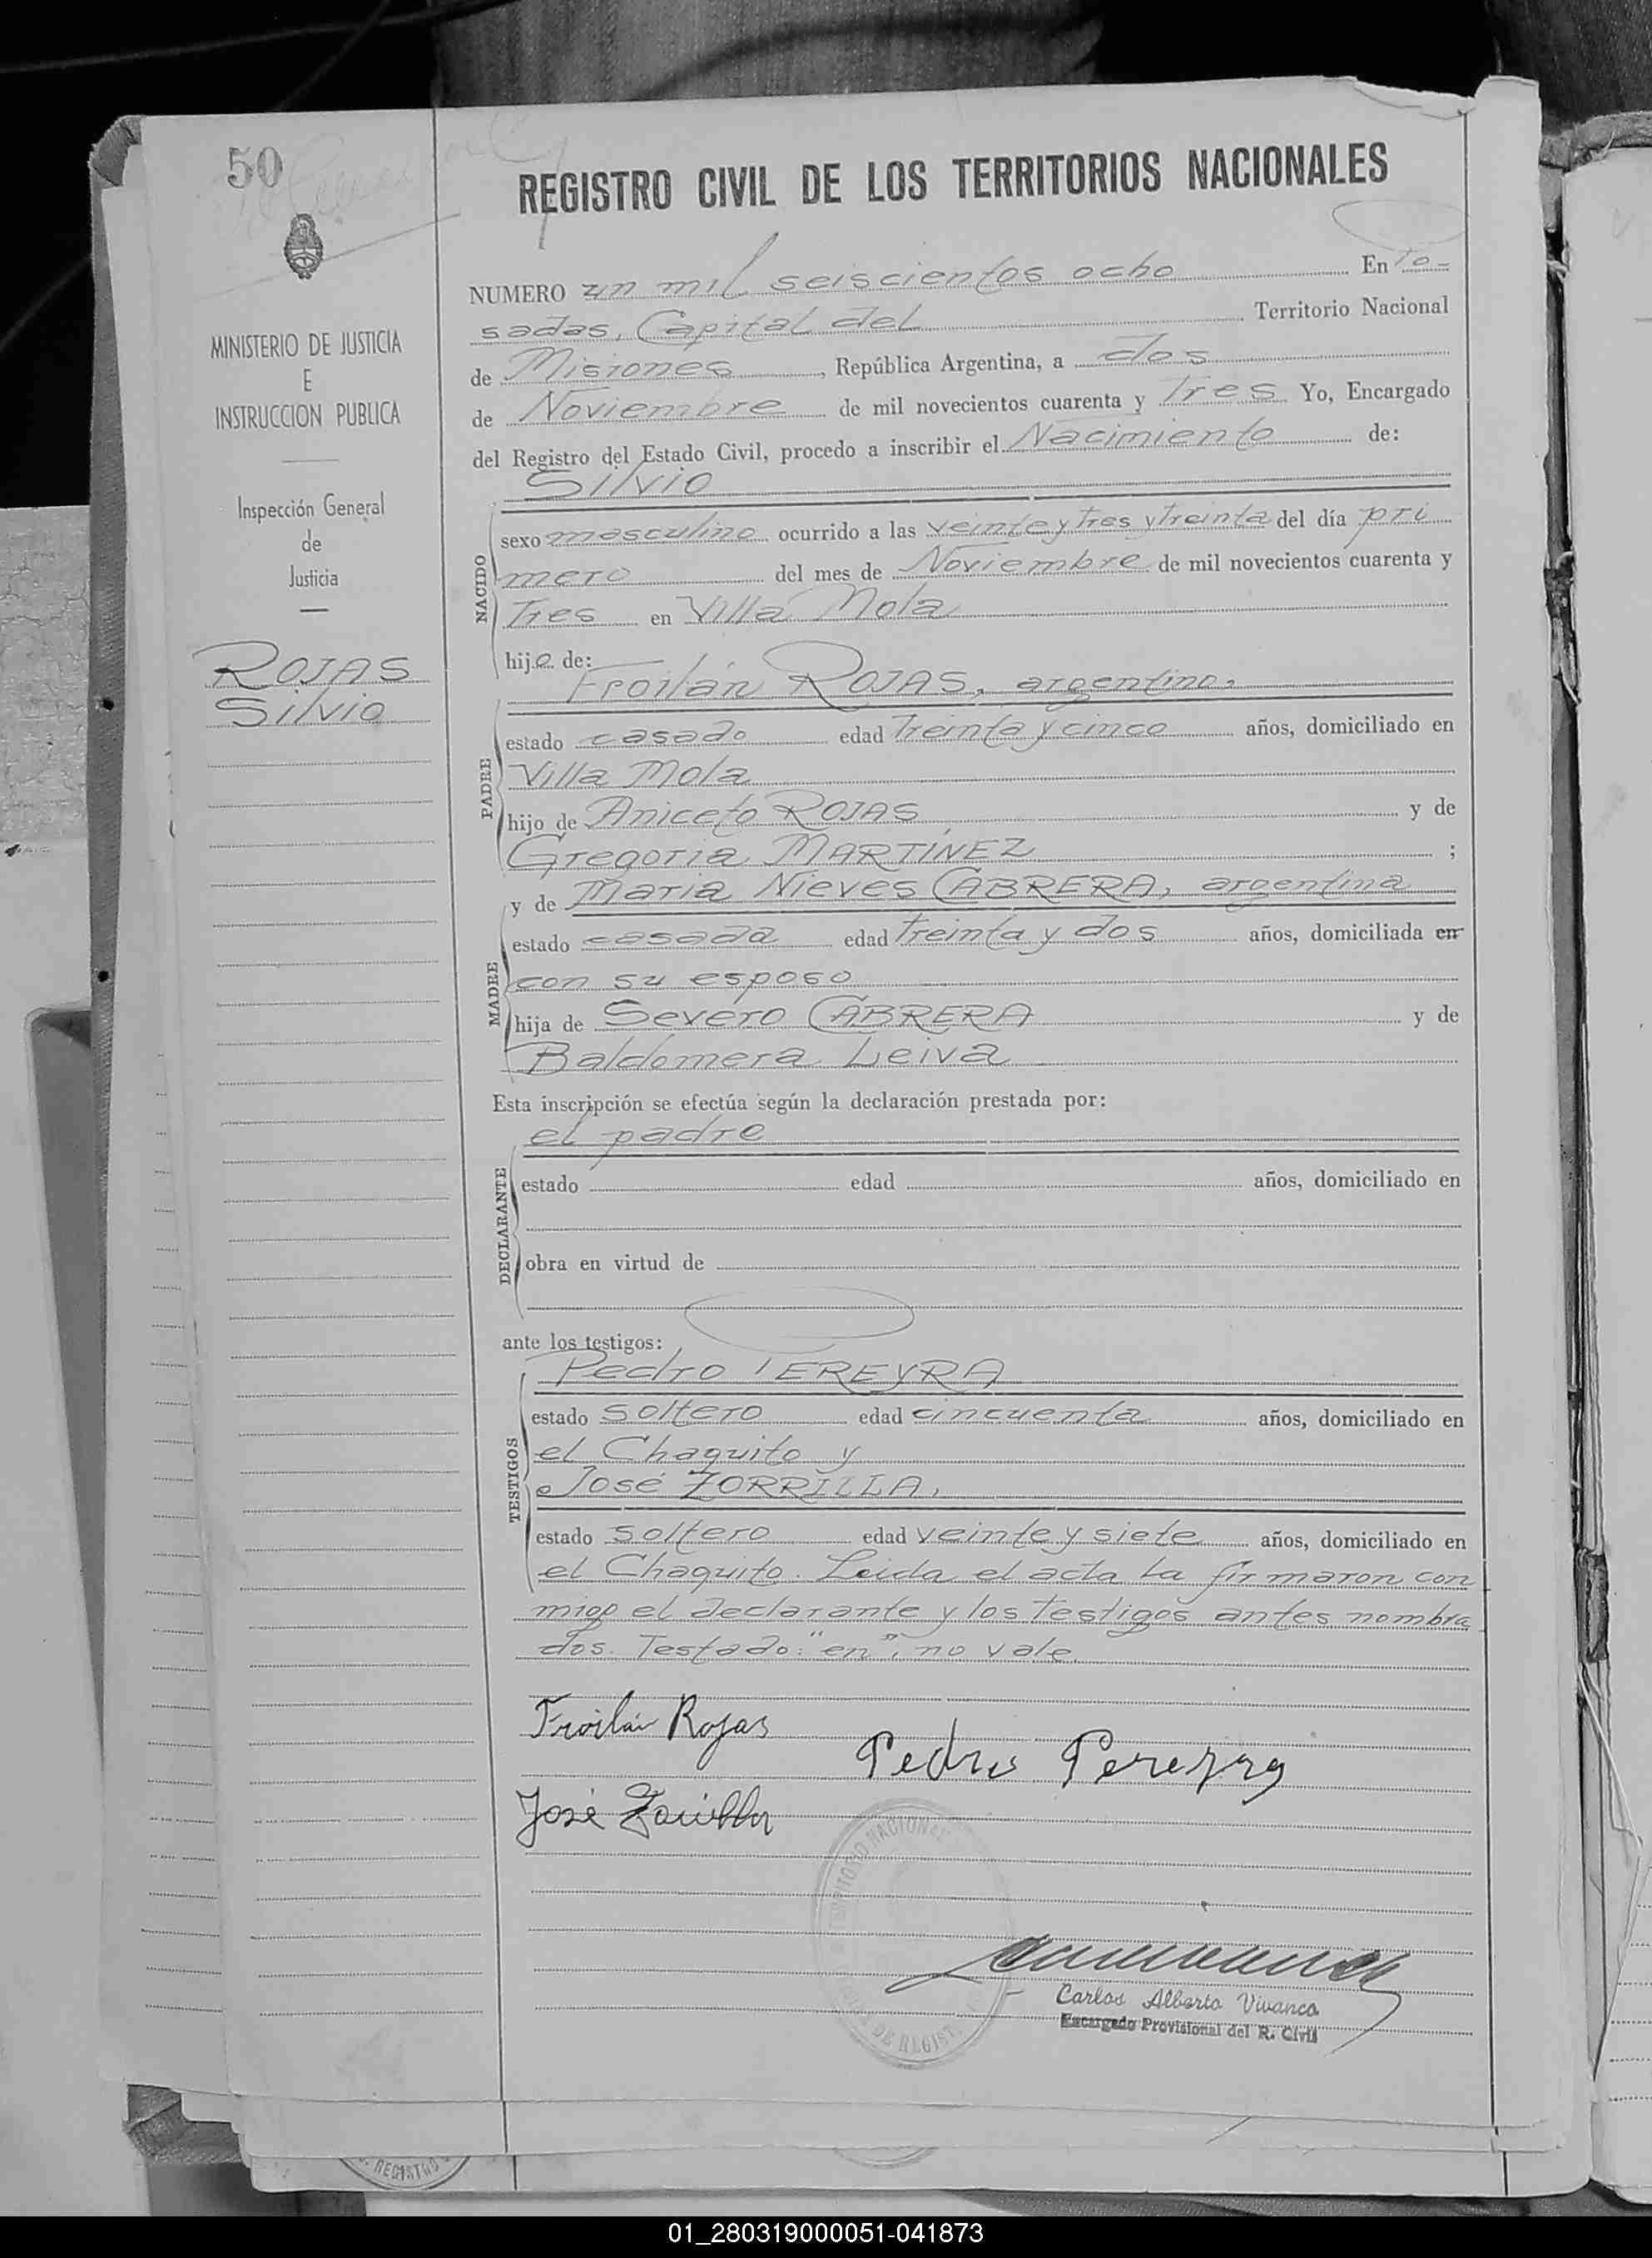 50
REGISTRO CIVIL DE LOS TERRITORIOS NACIONALES
MINISTERIO DE JUSTICIA
E
INSTRUCCION PUBLICA
Inspección General
de
Justicia
ROJAS
Silvio
NUMERO un mil seiscientos ocho En Po-
sadas, Capital del Territorio Nacional
de Misiones, República Argentina, a dos
de Noviembre de mil novecientos cuarenta y Tres Yo, Encargado
del Registro del Estado Civil, procedo a inscribir el Nacimiento de:
Silvio
NACIDO
sexo masculino ocurrido a las veinte y Tres y treinta del día pri
mero del mes de Noviembre de mil novecientos cuarenta y
Tres en Villa Mola
hijo de:
Froilán ROJAS, argentino,
PADRE
estado casado edad Treinta y cinco años, domiciliado en
Villa Mola
hijo de Aniceto ROJAS y de
Gregoria MARTÍNEZ ;
y de Maria Nieves CABRERA, argentina
MADRE
estado casada edad Treinta y dos años, domiciliada en
con su esposo
hija de Severo CABRERA y de
Baldomera Leiva
Esta inscripción se efectúa según la declaración prestada por:
el padre
DECLARANTE
estado edad años, domiciliado en
obra en virtud de
ante los testigos:
Pedro PEREYRA
TESTIGOS
estado soltero edad cincuenta años, domiciliado en
el Chaquito y
José ZORRILLA,
estado soltero edad veinte y siete años, domiciliado en
el Chaquito. Leida el acta la firmaron con
migo el declarante y los Testigos antes nombra
dos. Testado: "en", no vale.
Froilán Rojas
Pedro Pereyra
José Zorrilla
TERRITORIO NACIONAL
DE REGIST.
Carlos Alberto Vivanco
Encargado Provisional del R. Civil
REGISTRO
01_280319000051-041873